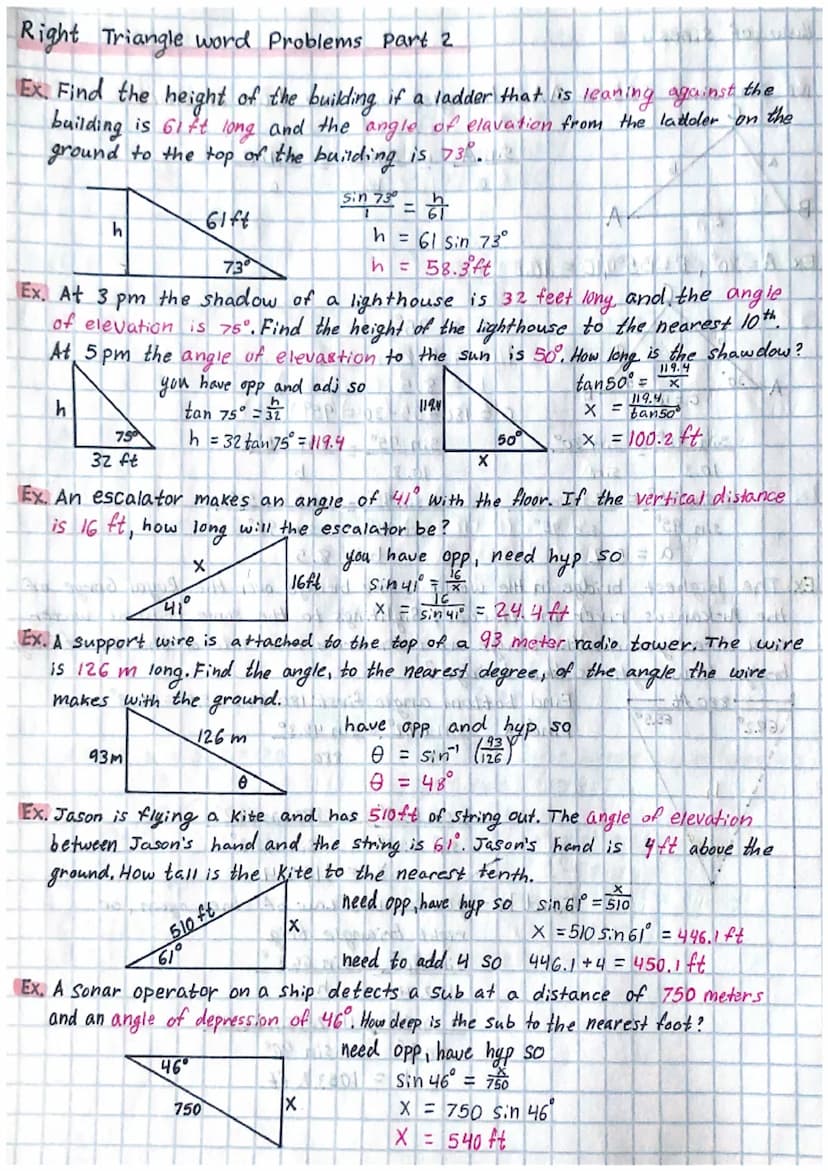 Right Triangle word Problems Part 2
Ex. Find the height of the building if a ladder that is leaning against the
building is 61 ft long and the angle of elavation from the laddoler on the
ground to the top of the building is 73°.
h
61 ft
73°
sin 73°/1 = h/61
h = 61 sin 73°
h = 58.3 ft
Ex. At 3 pm the shadow of a lighthouse is 32 feet long and the angle
of elevation is 75°. Find the height of the lighthouse to the nearest 10th.
At 5 pm the angle of elevastion to the sun is 50°. How long is the shawdow?
h
75°
32 ft
you have opp and adj so
tan 75° = h/32
h = 32 tan 75° = 119.4
119.4
50°
x
tan 50° = 119.4/x
x = 119.4/tan50°
x = 100.2 ft
Ex. An escalator makes an angle of 41° with the floor. If the vertical distance
is 16 ft, how long will the escalator be?
x
16ft
41°
you have opp, need hyp so
sin 41° = 16/x
x = 16/sin 41° = 24.4 ft
Ex. A support wire is attached to the top of a 93 meter radio tower. The wire
is 126 m long. Find the angle, to the nearest degree, of the angle the wire
makes with the ground.
126 m
93m
θ
have opp and hyp so
θ = sin⁻¹ (93/126)
θ = 48°
Ex. Jason is flying a kite and has 510ft of string out. The angle of elevation
between Jason's hand and the string is 61°. Jason's hand is 4ft above the
ground. How tall is the kite to the nearest tenth.
510 ft
x
61°
need opp, have hyp so sin 61° = x/510
x = 510 sin 61° = 446.1 ft
need to add 4 so 446.1 + 4 = 450.1 ft
Ex. A sonar operator on a ship detects a sub at a distance of 750 meters
and an angle of depression of 46°. How deep is the sub to the nearest foot?
46°
750
x
need opp, have hyp so
sin 46° = x/750
x = 750 sin 46°
x = 540 ft